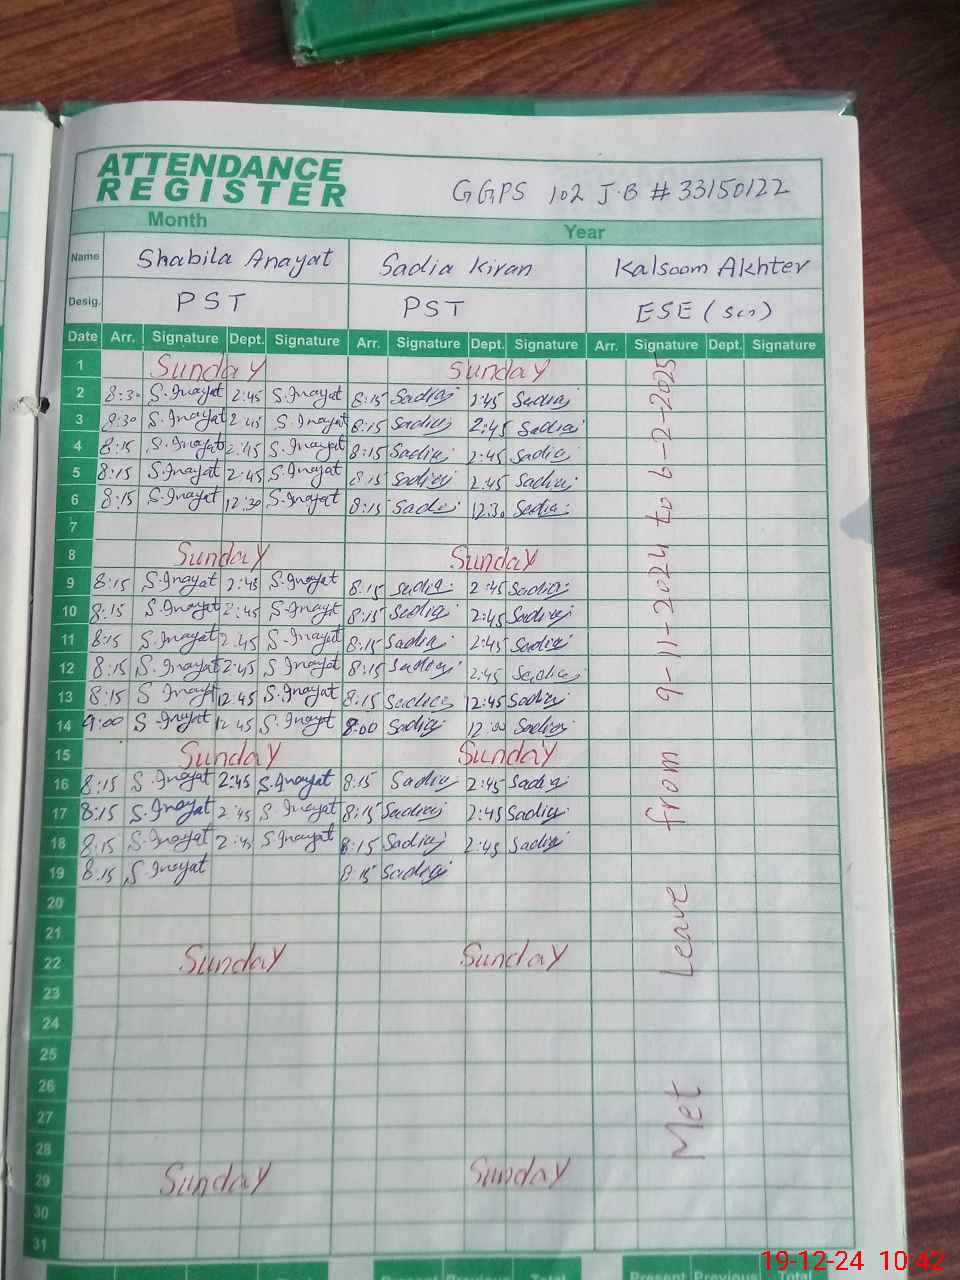 ATTENDANCE
REGISTER
GGPS 102 J.B # 33150122
Month Year
Name Shabila Anayat Sadia Kiran Kalsoom Akhter
Desig. PST PST ESE (Sci)
Date Arr. Signature Dept. Signature Arr. Signature Dept. Signature Arr. Signature Dept. Signature
1 Sunday Sunday
2 8:30 S.Inayat 2:45 S.Inayat 8:15 Sadia 2:45 Sadia
3 8:30 S.Inayat 2:45 S.Inayat 8:15 Sadia 2:45 Sadia
4 8:15 S.Inayat 2:45 S.Inayat 8:15 Sadia 2:45 Sadia
5 8:15 S.Inayat 2:45 S.Inayat 8:15 Sadia 2:45 Sadia
6 8:15 S.Inayat 12:30 S.Inayat 8:15 Sadia 12:30 Sadia
7
8 Sunday Sunday
9 8:15 S.Inayat 2:45 S.Inayat 8:15 Sadia 2:45 Sadia
10 8:15 S.Inayat 2:45 S.Inayat 8:15 Sadia 2:45 Sadia
11 8:15 S.Inayat 2:45 S.Inayat 8:15 Sadia 2:45 Sadia
12 8:15 S.Inayat 2:45 S.Inayat 8:15 Sadia 2:45 Sadia
13 8:15 S.Inayat 12:45 S.Inayat 8:15 Sadia 12:45 Sadia
14 9:00 S.Inayat 12:45 S.Inayat 8:00 Sadia 12:00 Sadia
15 Sunday Sunday
16 8:15 S.Inayat 2:45 S.Inayat 8:15 Sadia 2:45 Sadia
17 8:15 S.Inayat 2:45 S.Inayat 8:15 Sadia 2:45 Sadia
18 8:15 S.Inayat 2:45 S.Inayat 8:15 Sadia 2:45 Sadia
19 8:15 S.Inayat 8:15 Sadia
20
21
22 Sunday Sunday
23
24
25
26
27
28
29 Sunday Sunday
30
31
Met Leave from 9-11-2024 to 6-2-2025
Present Previous Total
19-12-24 10:42